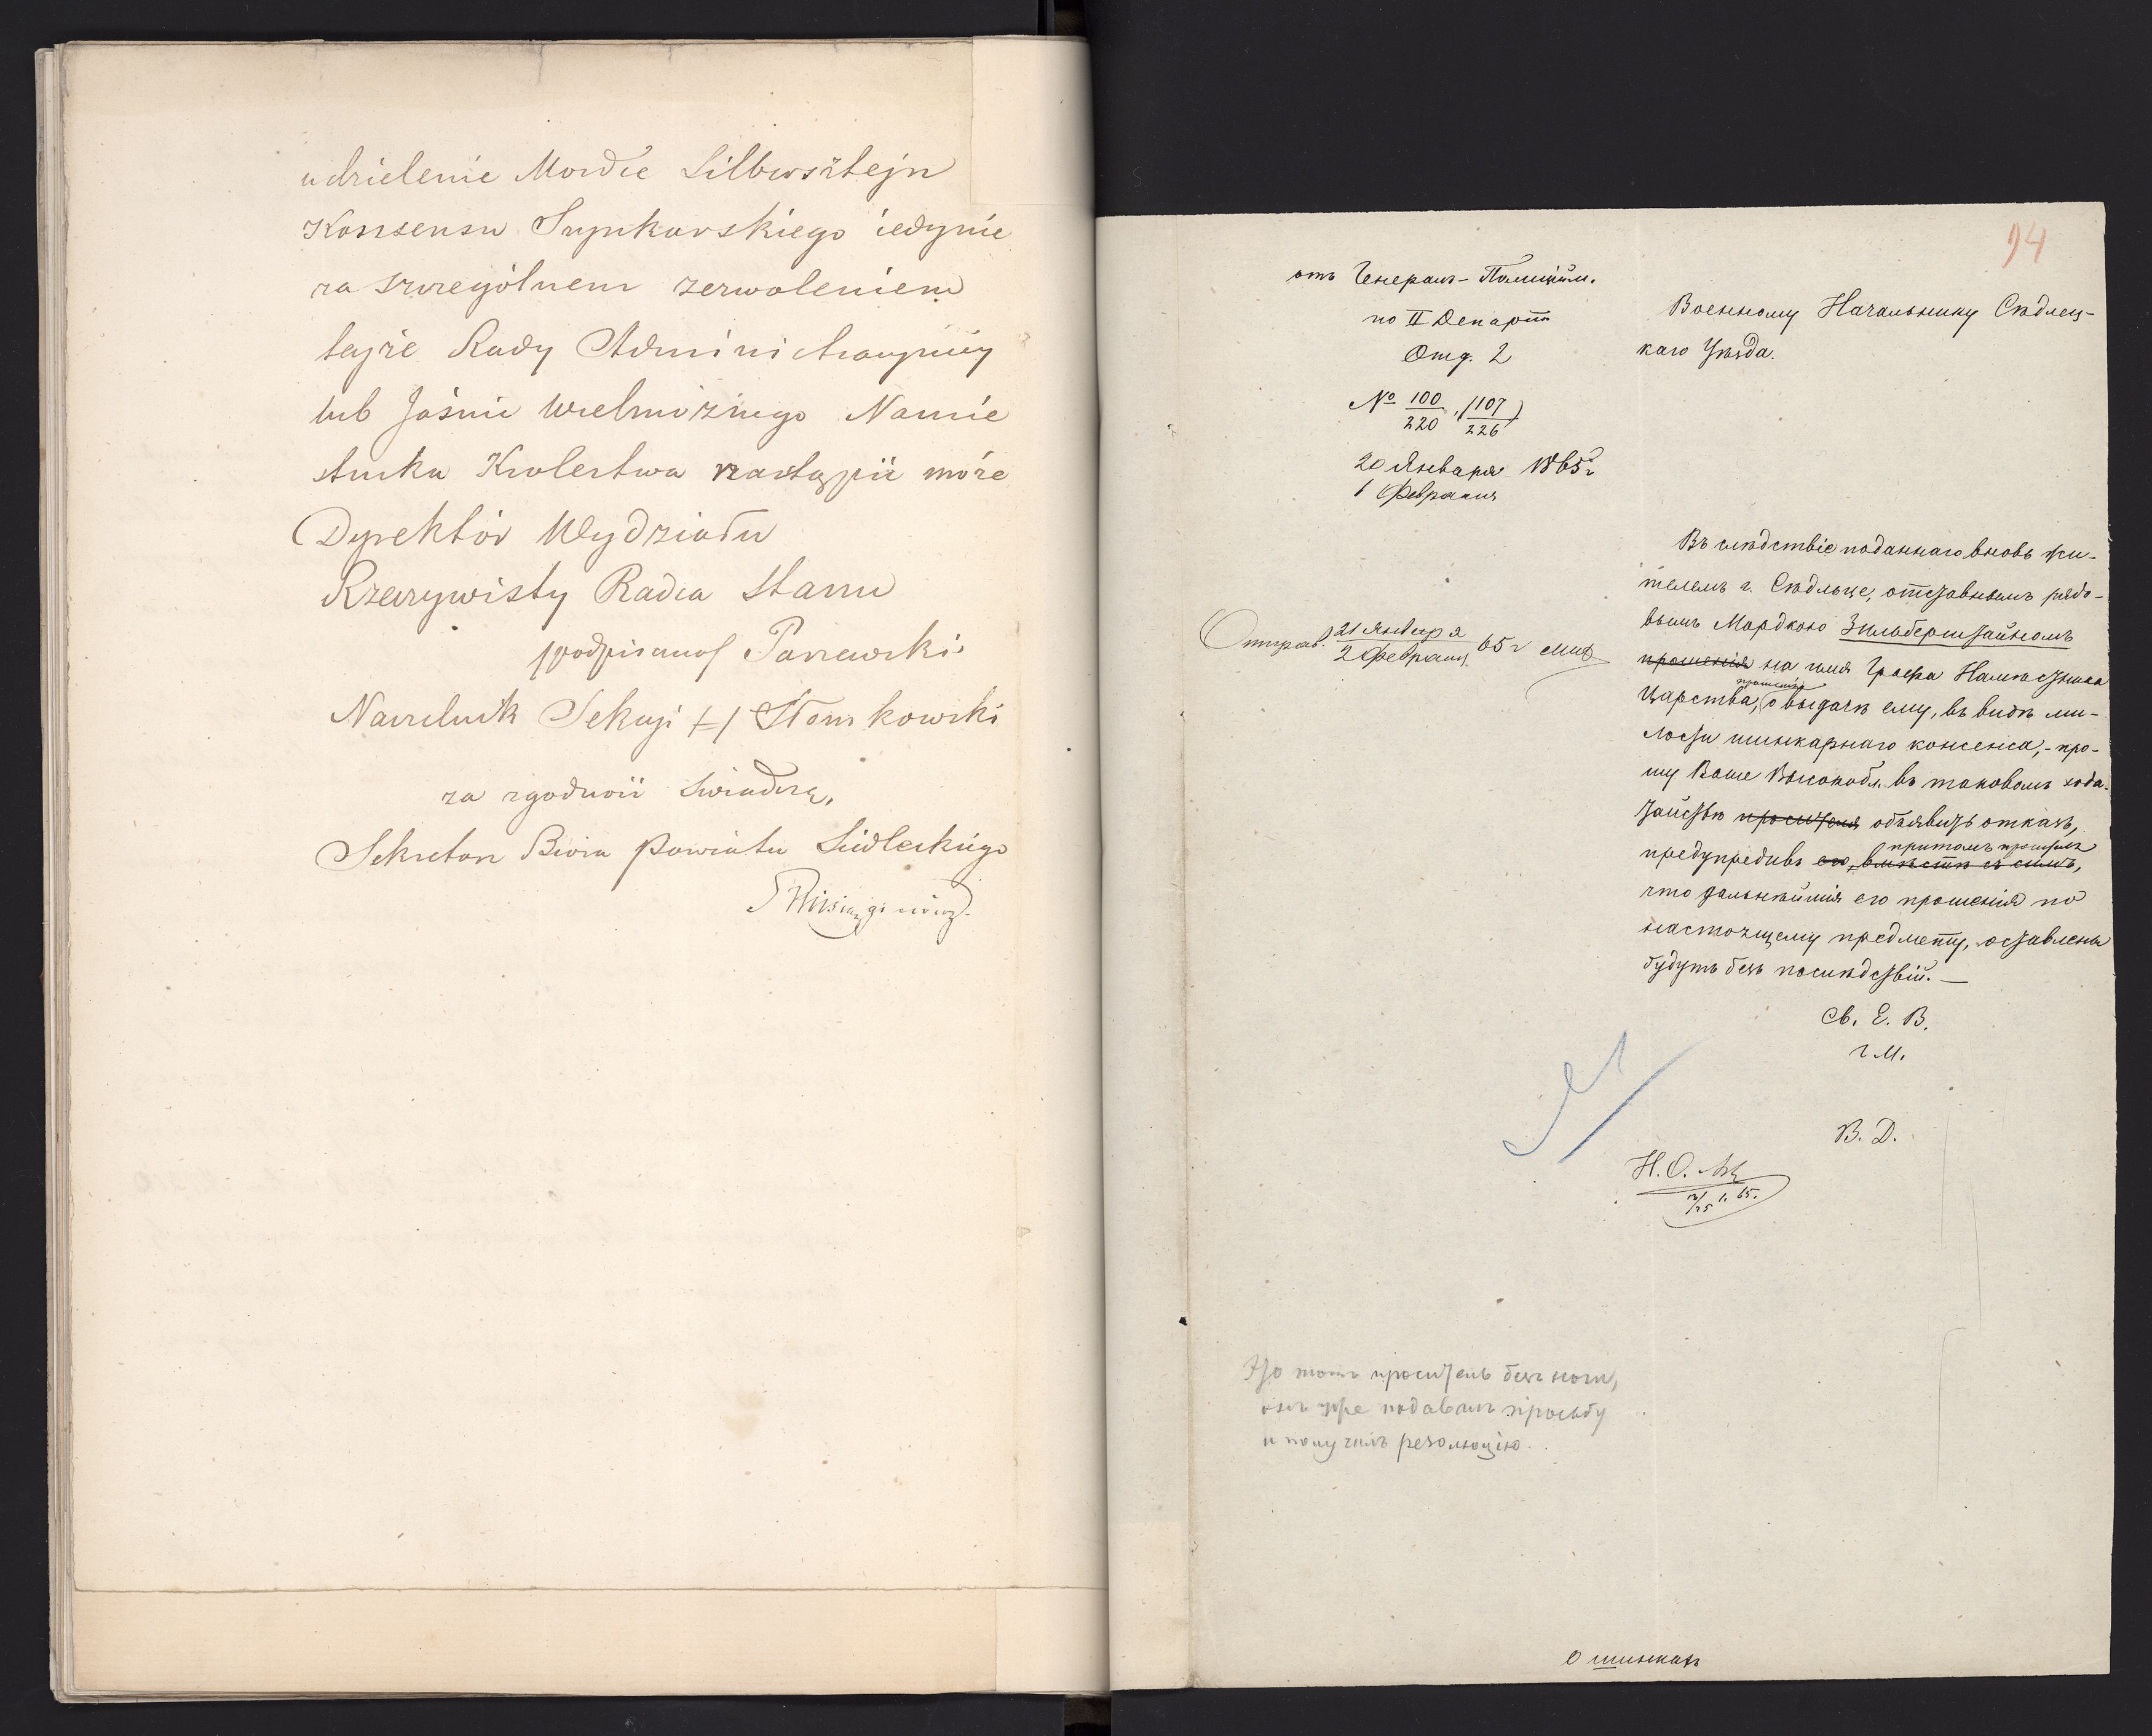 udzielenie Mordce Silbersztejn
Konsensu Szynkarskiego iedynie
za szczególnem zezwoleniem
tejże Rady Administracyjnéy
lub Jaśnie Wielmożnego Namie
stnika Krolestwa nastąpić może
Dyrektór Wydziału
Rzeczywisty Radca Stanu
/podpisano/
Naczelnik Sekcyi /-/ Słomkowski
za zgodność świadczę,
Sekretarz Biura Powiatu Siedleckiego
94
отъ Генералъ-Полиційм.
по II Департ
Отд. 2
№ 100/220, (107/226)
20 Января 1865 г
1 Февраля
Отправ. 21 Января 65 г
2 Февраля
Военному Начальнику Сѣдлец-
каго Уѣзда.
Въ слѣдствіе поданнаго вновь жи-
телемъ г. Сѣдльце, отставнымъ рядо-
вымъ Мордкою Зильберштайномъ
прошенія на имя Графа Намѣстника
прошенія
Царства, о выдачѣ ему, въ видѣ ми-
лости шинкарнаго консенса, - про-
шу Ваше Высокобл. въ таковомъ хода-
тайствѣ просителя объявить отказъ,
притомъ просителя
предупредивъ его, вмѣстѣ съ симъ,
что дальнѣйшія его прошенія по
настоящему предмету, оставлены
будутъ безъ послѣдствій. —
Св. Е. В.
г. М.
В. Д.
Н. О.
Это тотъ проситель безъ ноги,
онъ уже подавалъ просьбу
и получилъ резолюцію.
О шинкахъ